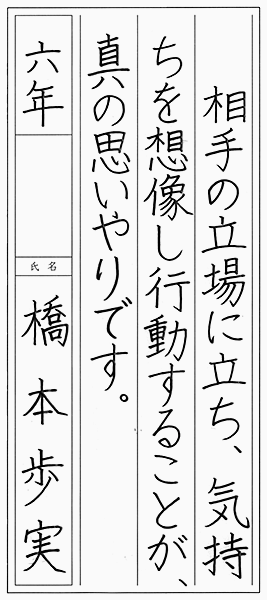 相手の立場に立ち、気持
ちを想像し行動することが、
真の思いやりです。
六年
氏名
橋本歩実